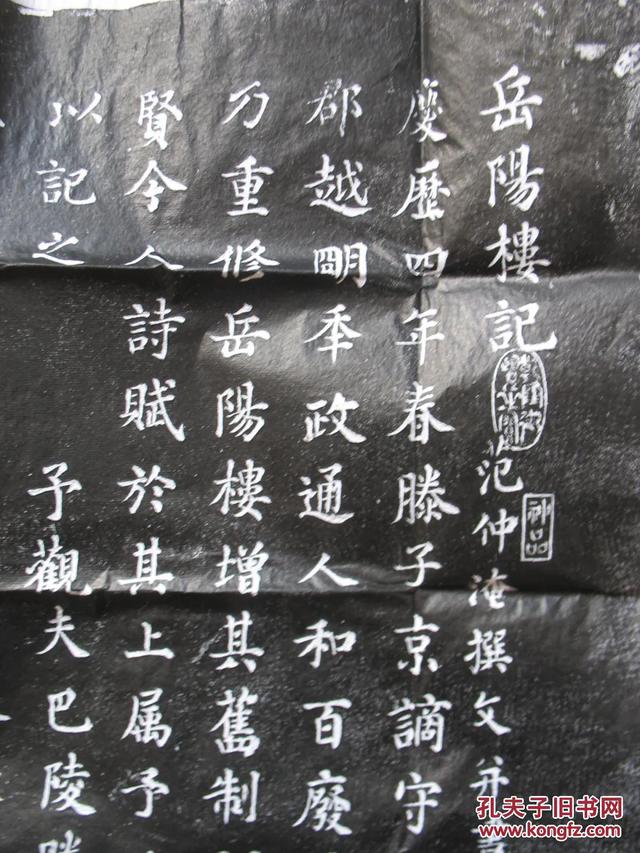 岳陽樓記 范仲淹撰文并書
慶歷四年春滕子京謫守
郡越明年政通人和百廢
乃重修岳陽樓增其舊制
賢今人詩賦於其上属予
以記之 予觀夫巴陵勝
神品
孔夫子旧书网
www.kongfz.com